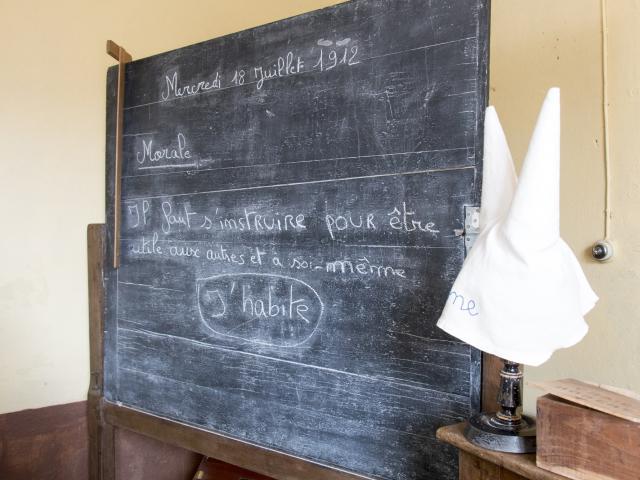 Mercredi 18 Juillet 1912
Morale
Il faut s'instruire pour être
utile aux autres et à soi-même
J'habite
me